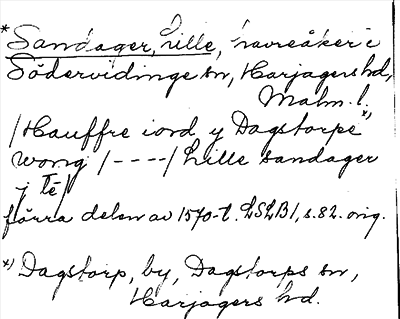 *Sandager, Lille, havreåker i
Södervidinge sn, Harjagers hd,
Malm. l.
/Hauffre iord y Dagstorpe*)
wong /----/ Lille sandager
y Tē/
förra delen av 1570-t. LSLB1, s. 82. orig.
*) Dagstorp, by, Dagstorps sn,
Harjagers hd.